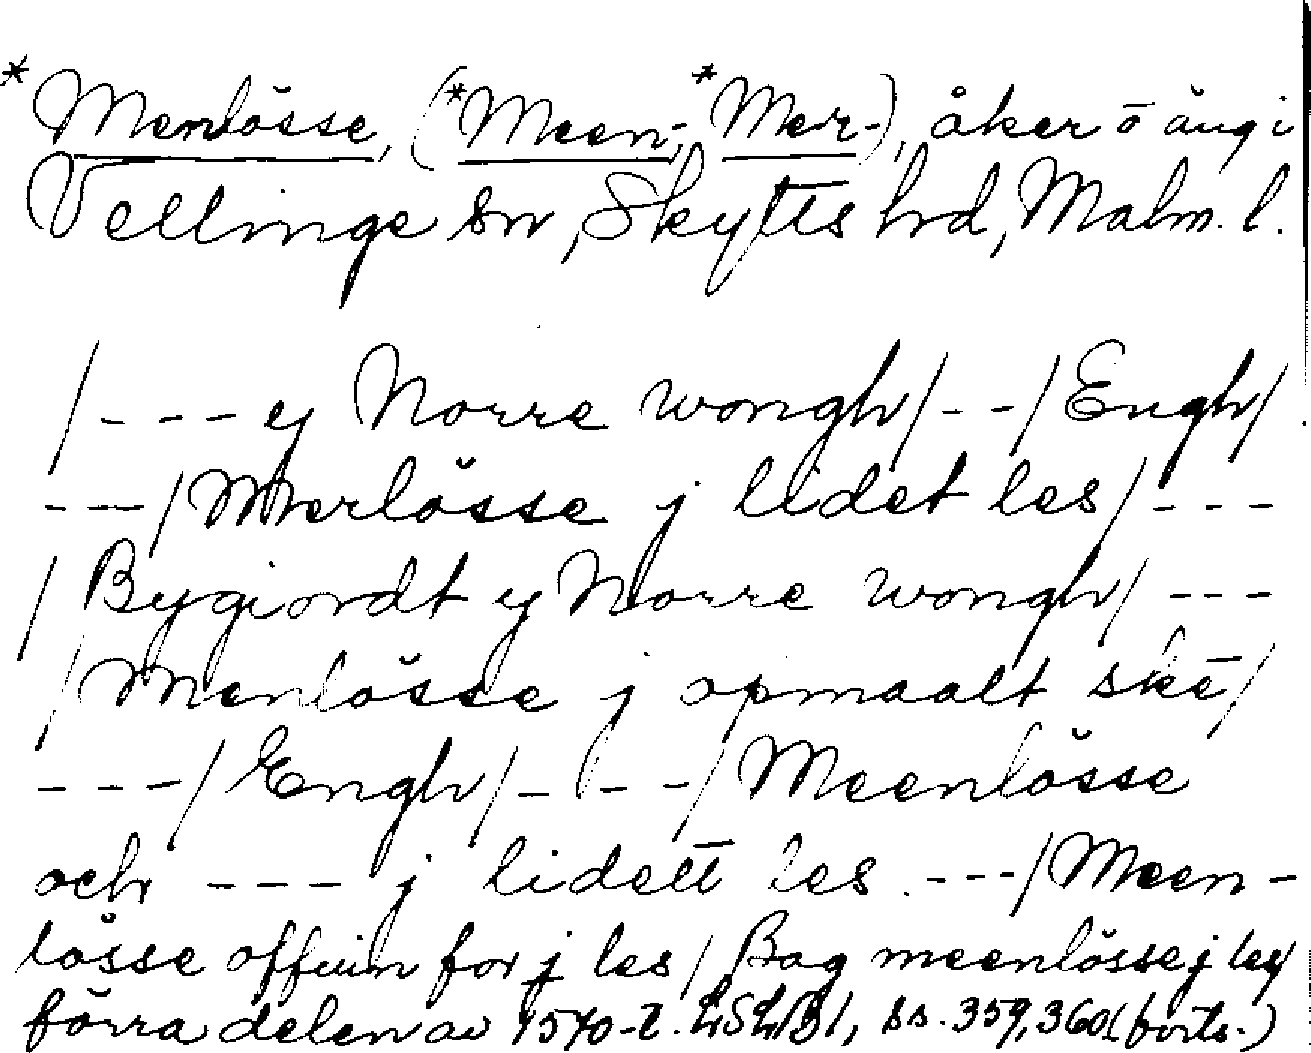 *Menlösse, (*Meen-, *Mer-), åker o äng i
Vellinge sn, Skytts hrd, Malm. l.
/--- ey Norre wongh/--/Engh/
---/Merlösse j lidet les/---
/Bygiordt ey Norre wongh/---
/Menlösse j opmaalt ske/
---/Engh/---/Meenlösse
och --- j lidett les ---/Meen-
lösse offuin for j les/ Bag meenlösse j les/
förra delen av 1570-t. ss. 359, 360 (forts.)